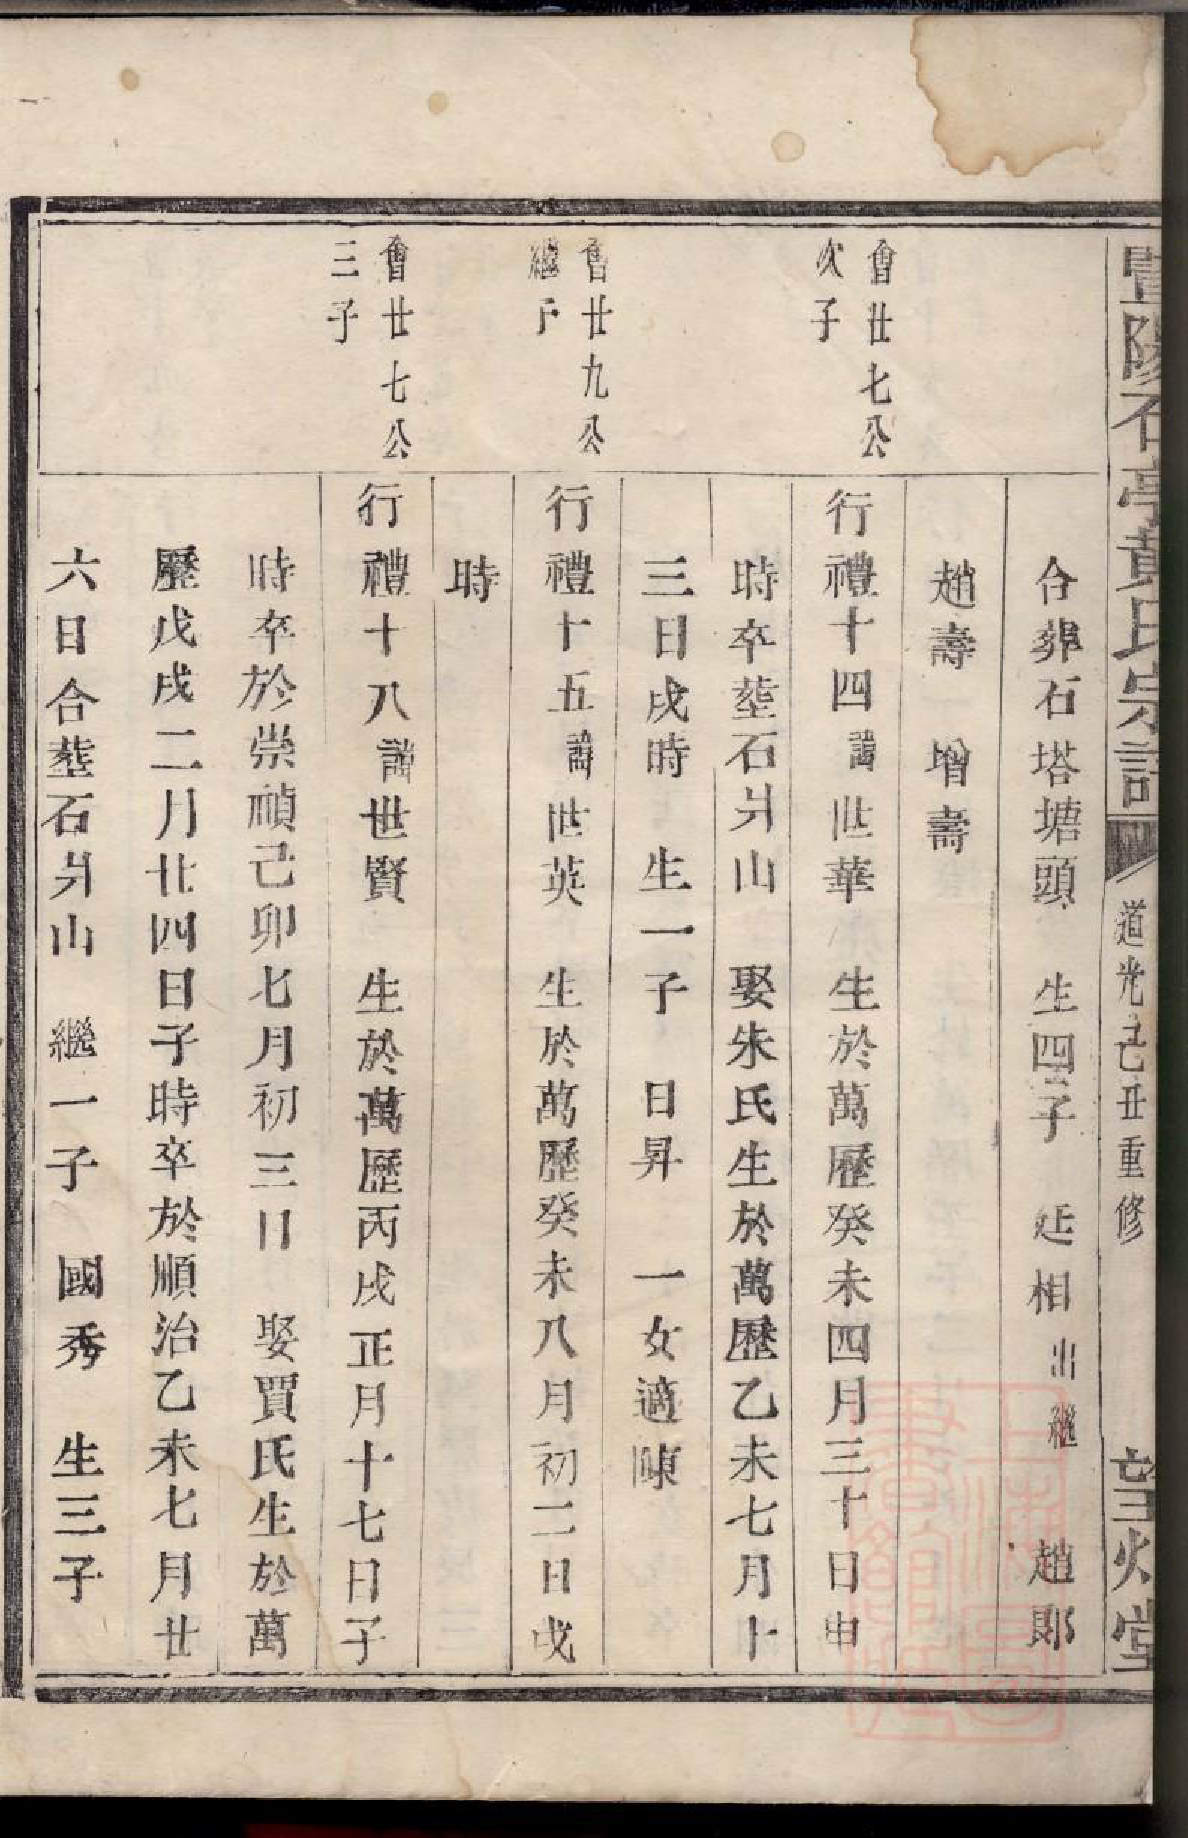 暨陽石亭黃氏宗譜 道光己丑重修 望烟堂
合葬石塔塘頭 生四子 延相出繼 趙郎
趙壽 增壽
會廿七公
次子
行禮十四諱世華 生於萬曆癸未四月三十日申
時卒塟石爿山 娶朱氏生於萬曆乙未七月十
三日戌時 生一子 日昇 一女適陳
會廿九公
繼子
行禮十五諱世英 生於萬曆癸未八月初二日戌
時
會廿七公
三子
行禮十八諱世賢 生於萬曆丙戌正月十七日子
時卒於崇禎己卯七月初三日 娶賈氏生於萬
曆戊戌二月廿四日子時卒於順治乙未七月廿
六日合塟石爿山 繼一子 國秀 生三子